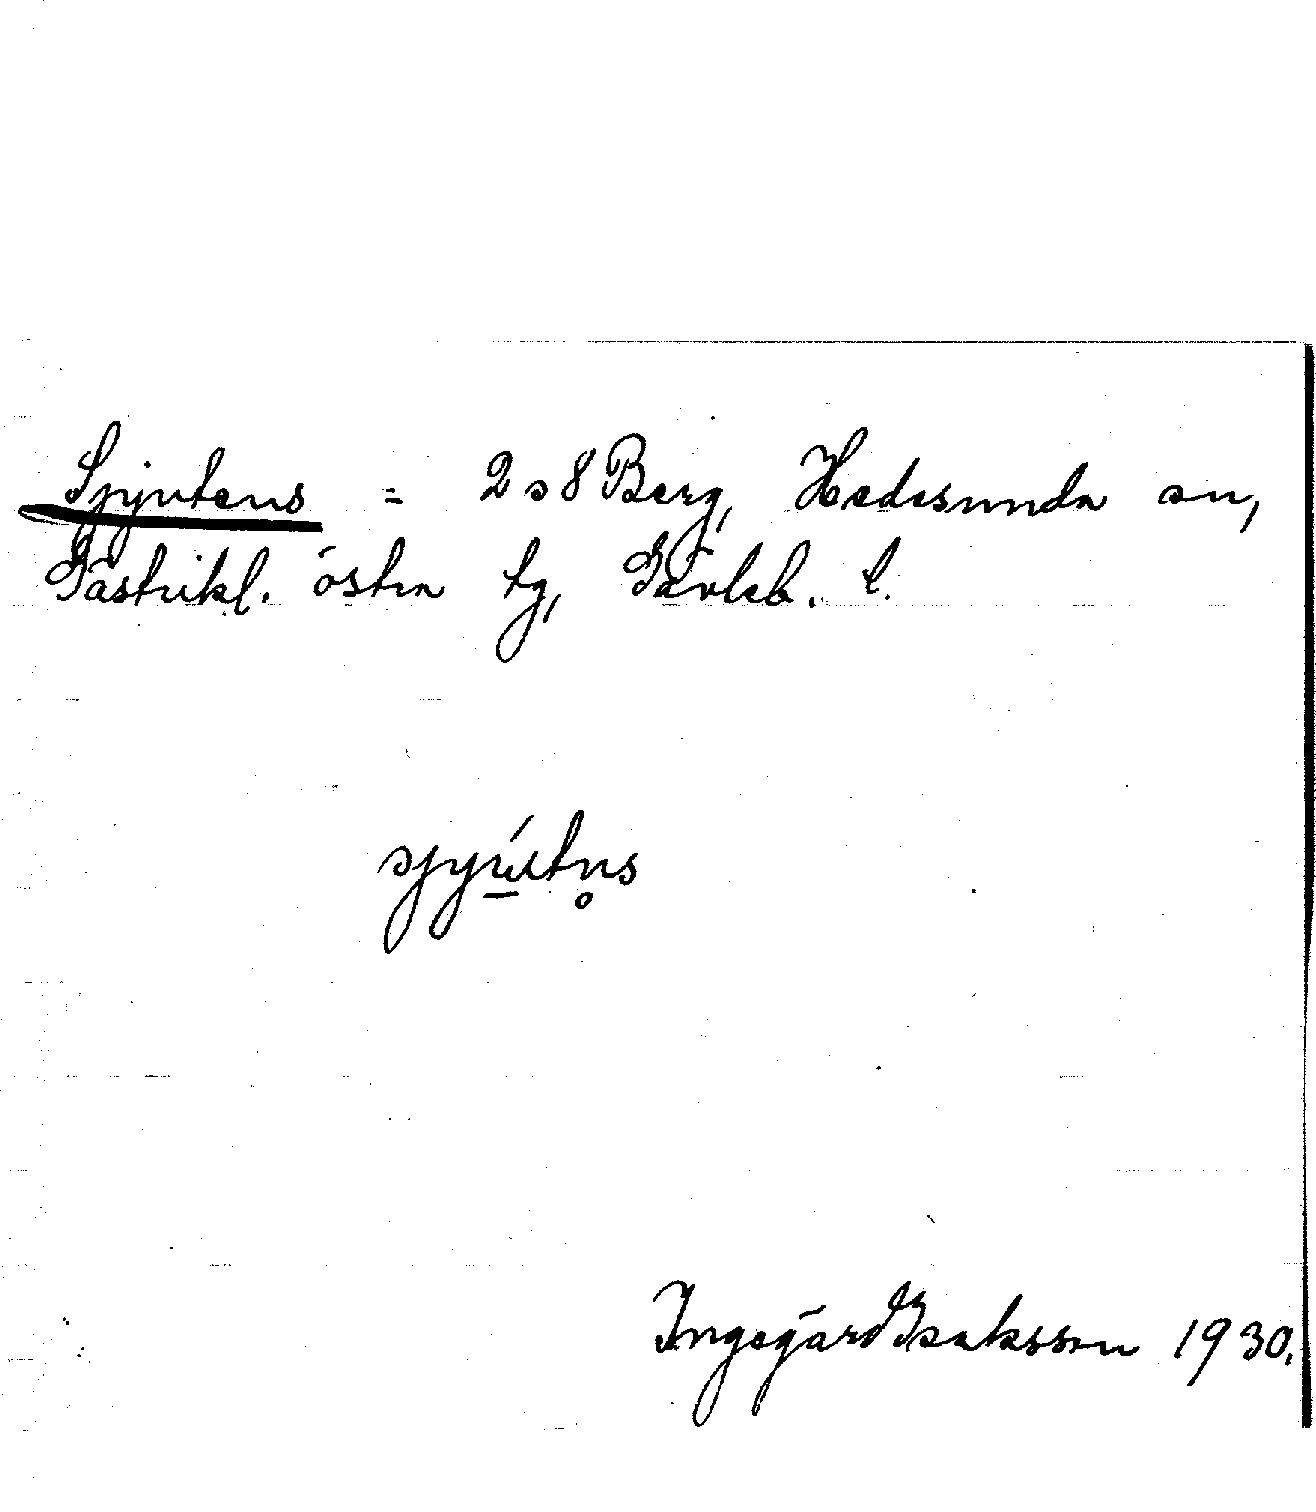 Spjutens = 2 o 8 Berg, Hedesunda sn,
Gästrikl. östra tg, Gävleb. l.
Ingegärd Isaksson 1930.